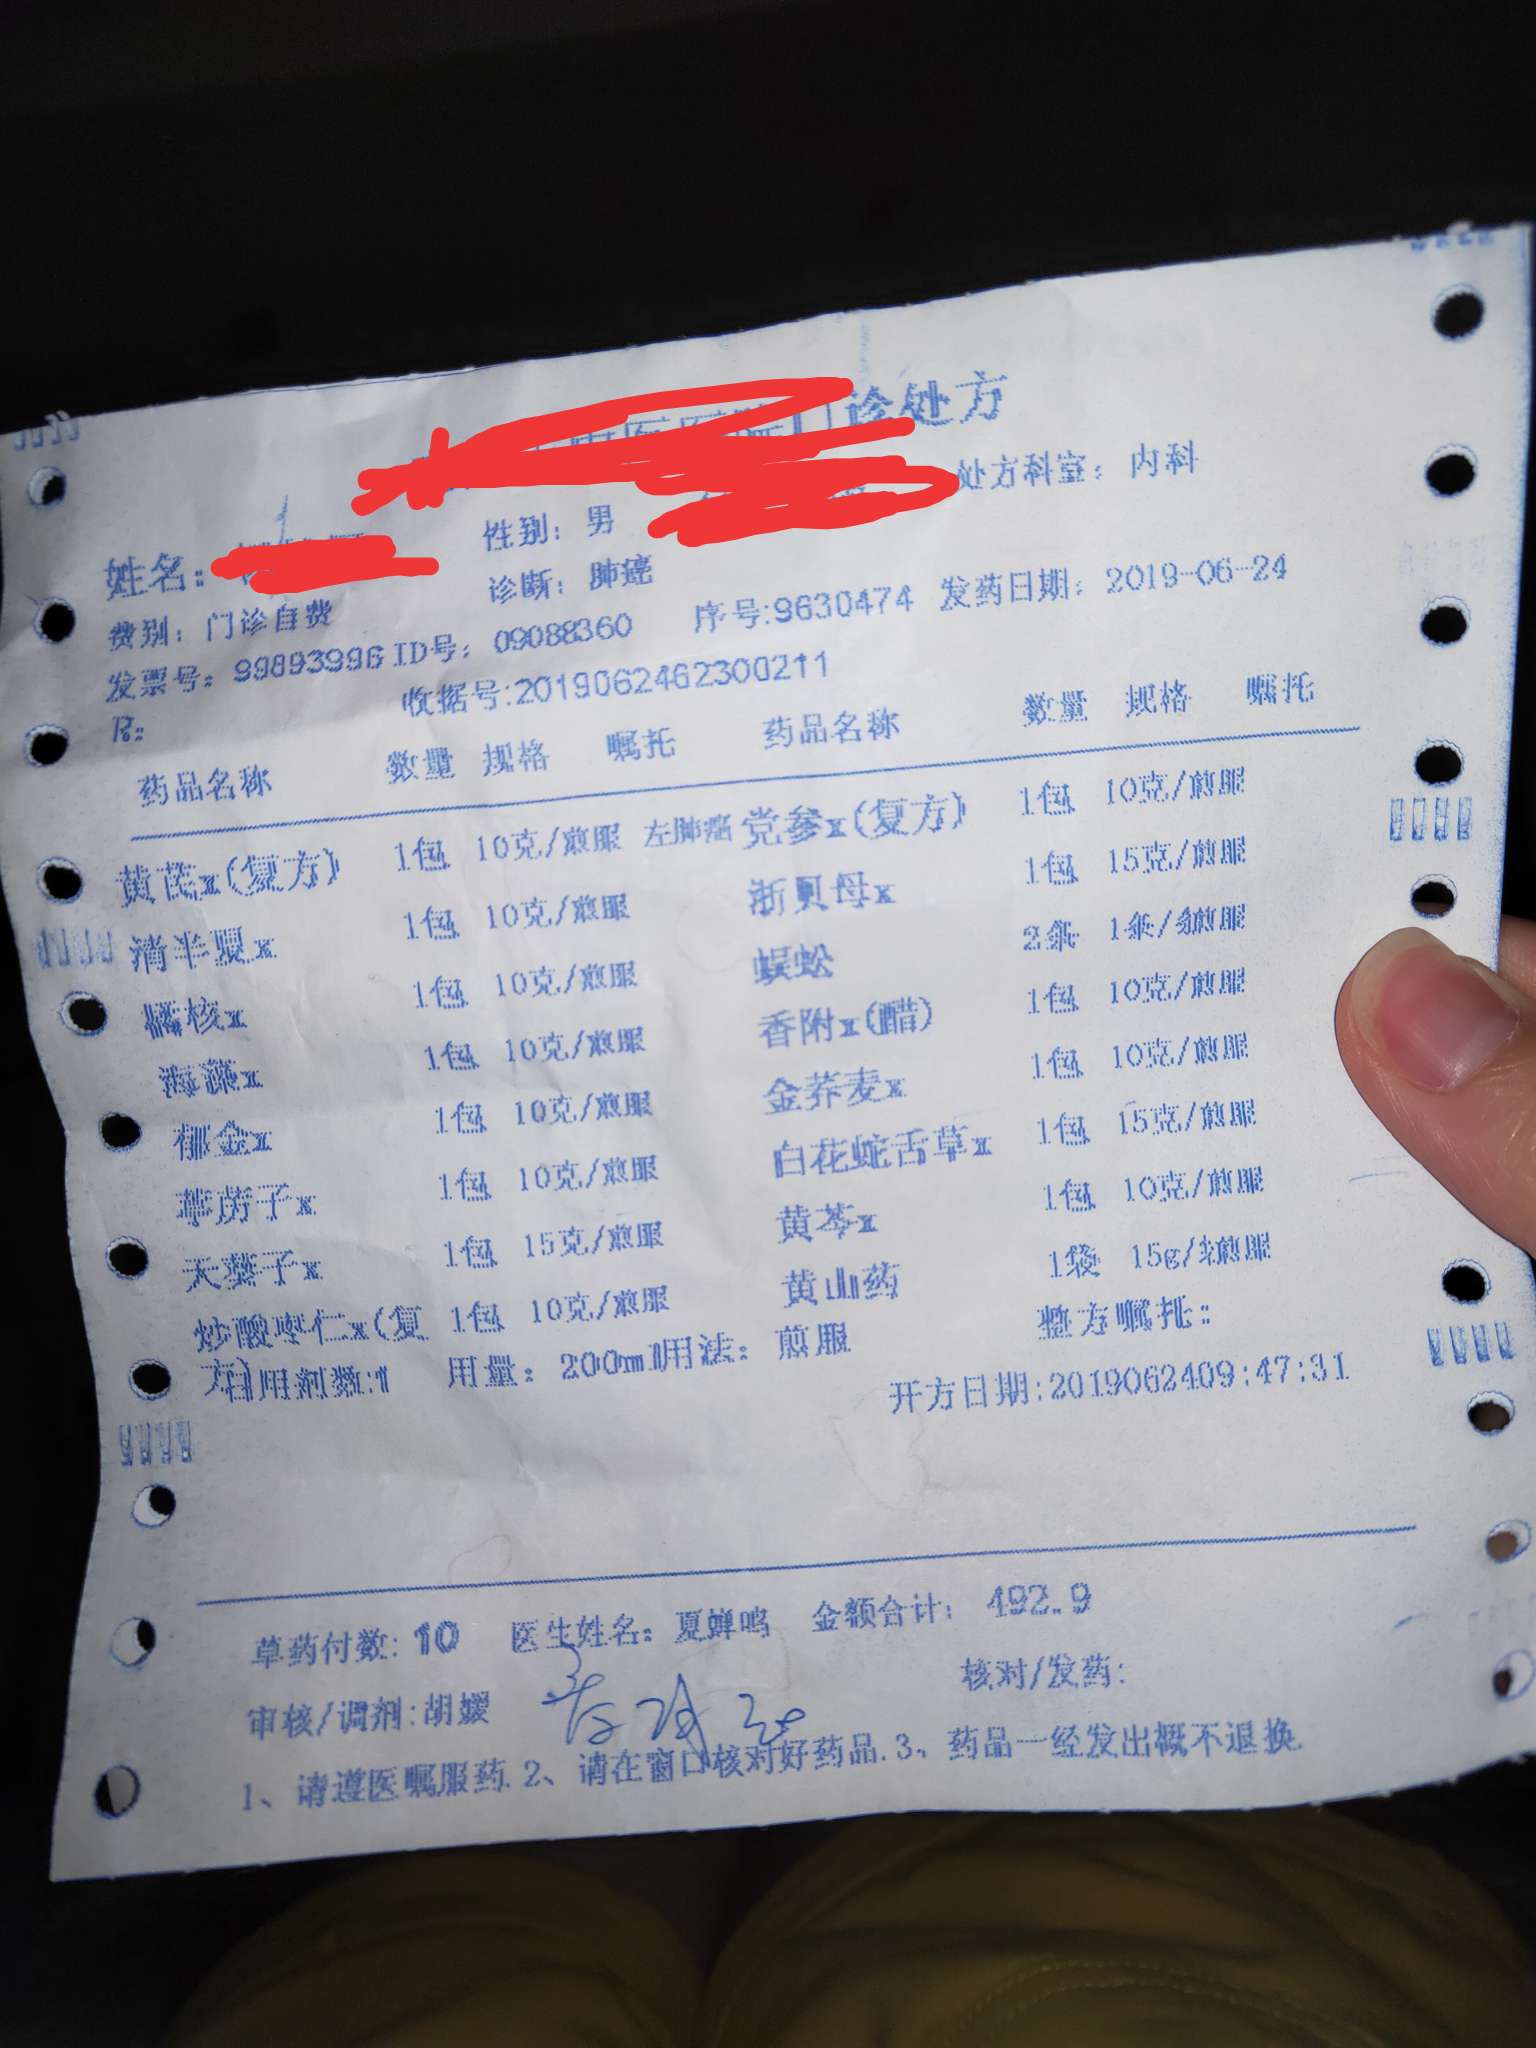 诊处方
姓名: 性别: 男 处方科室: 内科
费别: 门诊自费 诊断: 肺癌
发票号: 99893996 ID号: 09088360 序号:9630474 发药日期: 2019-06-24
收据号:2019062462300211
药品名称 数量 规格 嘱托 药品名称 数量 规格 嘱托
黄芪x(复方) 1包 10克/煎服 左肺瘤 党参x(复方) 1包 10克/煎服
清半夏x 1包 10克/煎服 浙贝母x 1包 15克/煎服
橘核x 1包 10克/煎服 蜈蚣 2条 1条/煎服
海藻x 1包 10克/煎服 香附x(醋) 1包 10克/煎服
郁金x 1包 10克/煎服 金荞麦x 1包 10克/煎服
葶苈子x 1包 10克/煎服 白花蛇舌草x 1包 15克/煎服
天葵子x 1包 15克/煎服 黄芩x 1包 10克/煎服
炒酸枣仁x(复方) 1包 10克/煎服 黄山药 1袋 15g/煎服
日用剂数:1 用量: 200ml 用法: 煎服 整方嘱托:
开方日期:2019062409:47:31
草药付数: 10 医生姓名: 夏蝉鸣 金额合计: 492.9
审核/调剂:胡媛 核对/发药:
1、请遵医嘱服药.2、请在窗口核对好药品.3、药品一经发出概不退换.